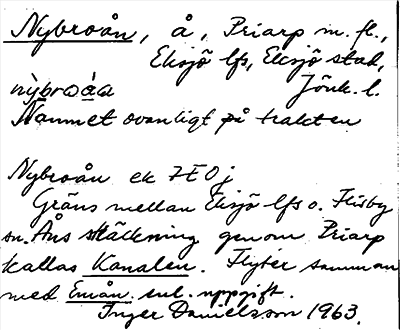 Nybroån, å, Priarp m. fl.,
Eksjö lfs, Eksjö stad,
nỳbroåa Jönk. l.
Namnet ovanligt på trakten
Nybroån ek 7E0j
Gräns mellan Eksjö lfs o. Flisby
sn. Åns sträckning genom Priarp
kallas Kanalen. Flyter samman
med Emån enl. uppgift.
Inger Danielsson 1963.